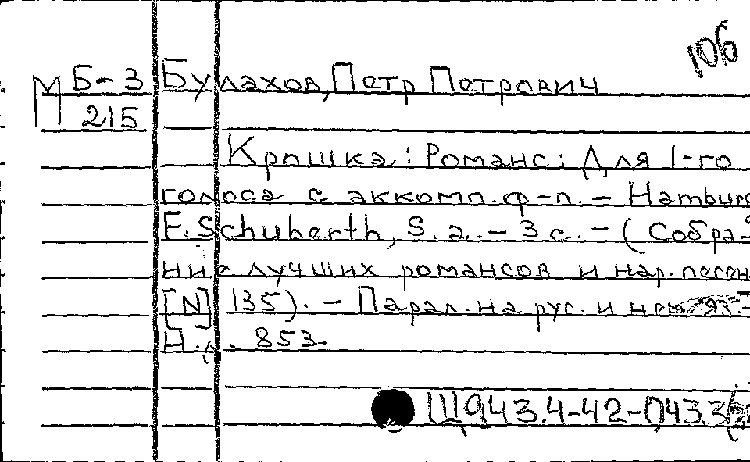 106
М Б-3 Булахов, Петр Петрович
215
Крошка: Романс: Для 1-го
голоса с аккомп. ф-п. – Hamburg
F. Schuberth, S. a. – 3 с. – (Собра-
ние лучших романсов и нар. песен
[N] 135). – Парал. на рус. и нем. яз. –
Н. д. 853.
Щ943.4-42-043.3